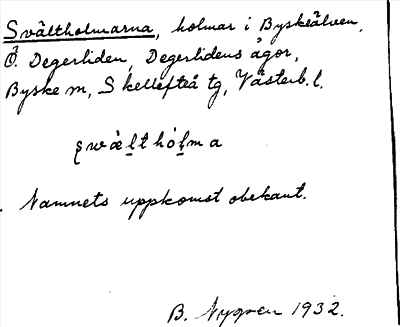 Svältholmarna, holmar i Byskeälven,
Ö. Degerliden, Degerlidens ägor,
Byske m, Skellefteå tg, Västerb. l.
s̨wäḷthóḷma
Namnets uppkomst obekant.
B. Nygren 1932.